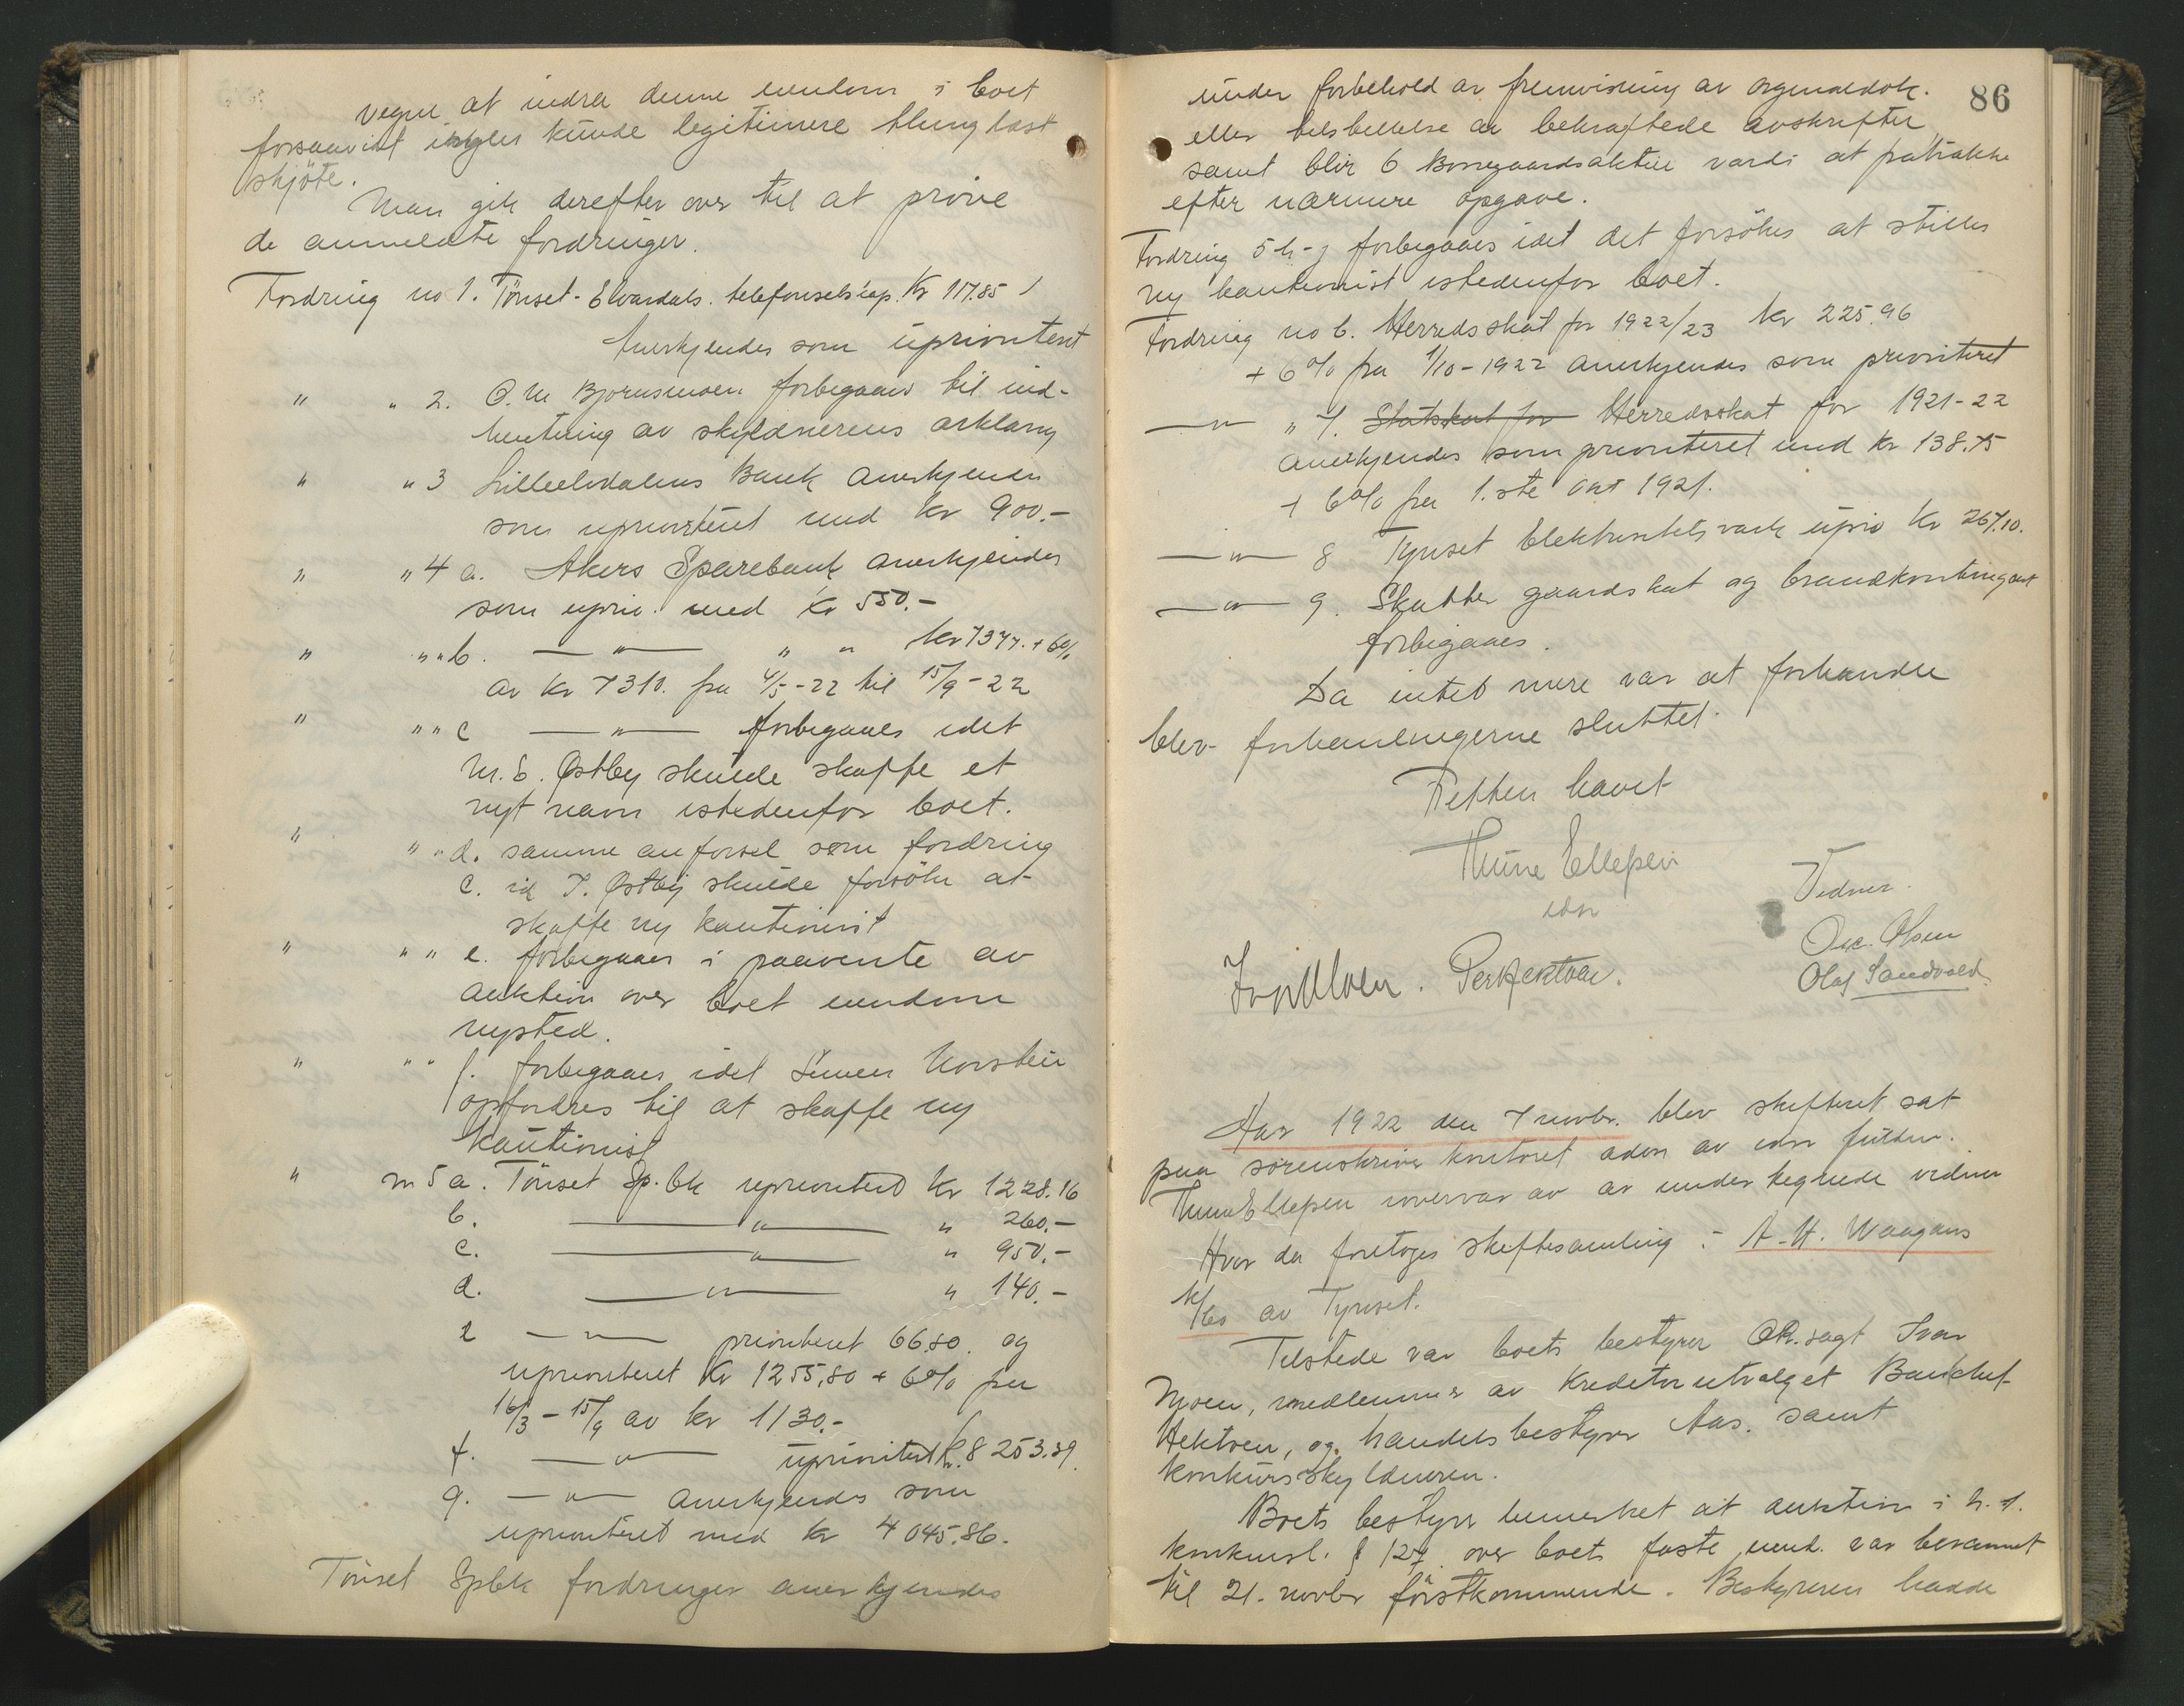 vegne at indra denne eiendom i boet
forsaavidt ingen kunde legitimere thinglæst
skjöte.
Man gik derefter over til at pröve
de anmeldte fordringer.
Fordring no 1. Tönset-Elvardals. telefonselskap. Kr 117.85
Anerkjendes som uprioritert
" " 2. O. M Bjornsmoen forbigaaes til ind-
hentning av skyldnerens erklæring
" " 3 Lilleelvdalens Bank anerkjendes
som uprioritert med kr 900.-
" " 4 a. Akers Sparebank anerkjendes
som uprio. med kr 550.-
" " " b. — " — " " kr 7377. + 6%
av kr 7310. fra 4/5-22 til 15/9-22
" " " c — " — forbigaaes idet
M. E. Østby skulde skaffe et
nyt navn istedenfor boet.
" " " d. samme anförsel som fordring
c. id T. Østby skulde forsöke at
skaffe ny kautionist
" " " e. forbigaaes i paavente av
auktion over boet eiendom
nysted.
" " " f. forbigaaes idet Simen Norstein
opfordres til at skaffe ny
kautionist
" " 5 a. Tönset Sp.bk uprioritert kr 1228.16
b. — " — " 260.-
c. — " — " 950.-
d. — " — " 140.-
e — " — prioritert 66.80. og
uprioritert Kr 1255.80 + 6% fra
16/3 - 15/9 av kr 1130.-
f. — " — uprioritert kr. 8 253.39.
g. — " — anerkjendes som
uprioritert med kr 4 045.86.
Tönset Spbk fordringer anerkjendes
86
under forbehold av fremvisning av orginaldok.
eller tilsbillelse av bekræftede avskrifter
samt blir 6 Borregaardsaktier værdi at fratrække
efter nærmere opgave.
Fordring 5 h-j forbigaaes idet det forsökes at stilles
ny kautionist istedenfor boet.
Fordring no 6. Herredsskat for 1922/23 kr 225.96
+ 6% fra 1/10-1922 anerkjendes som prioriteret
— " — " 7. Statsskat for Herredsskat for 1921-22
anerkjendes som prioriteret med kr 138.75
+ 6% fra 1.ste okt 1921.
— " — 8 Tynset Elektrisitetsværk uprio kr 267.10.
— " — 9. Skatter gaardskat og brandkontingent
forbigaaes.
Da intet mere var at forhandle
blev forhandlingerne sluttet.
Retten hævet
Thune Ellefsen
edsv
Vidner.
Osc. Olsen
Olaf Sandvold
Ivar Moen. Per Hektoen.
Aar 1922 den 7 novbr. blev skifteret sat
paa sorenskriver kontoret adm av edsv fuldm.
Thune Ellefsen i overvær av av undertegnede vidner
Hvor da foretoges skiftesamling :- A. H. Waagans
k/bo av Tynset.
Tilstede var boets bestyrer OR.sagf Ivar
Moen, medlemmer av kreditorutvalget Bankchef
Hektoen, og handelsbestyrer Aas. samt
konkursskyldneren.
Boets bestyrer bemerket at auktion i h. t.
konkursl. § 127 over boets faste eiend. var berammet
til 21. novbr förstkommende. Bestyreren hadde